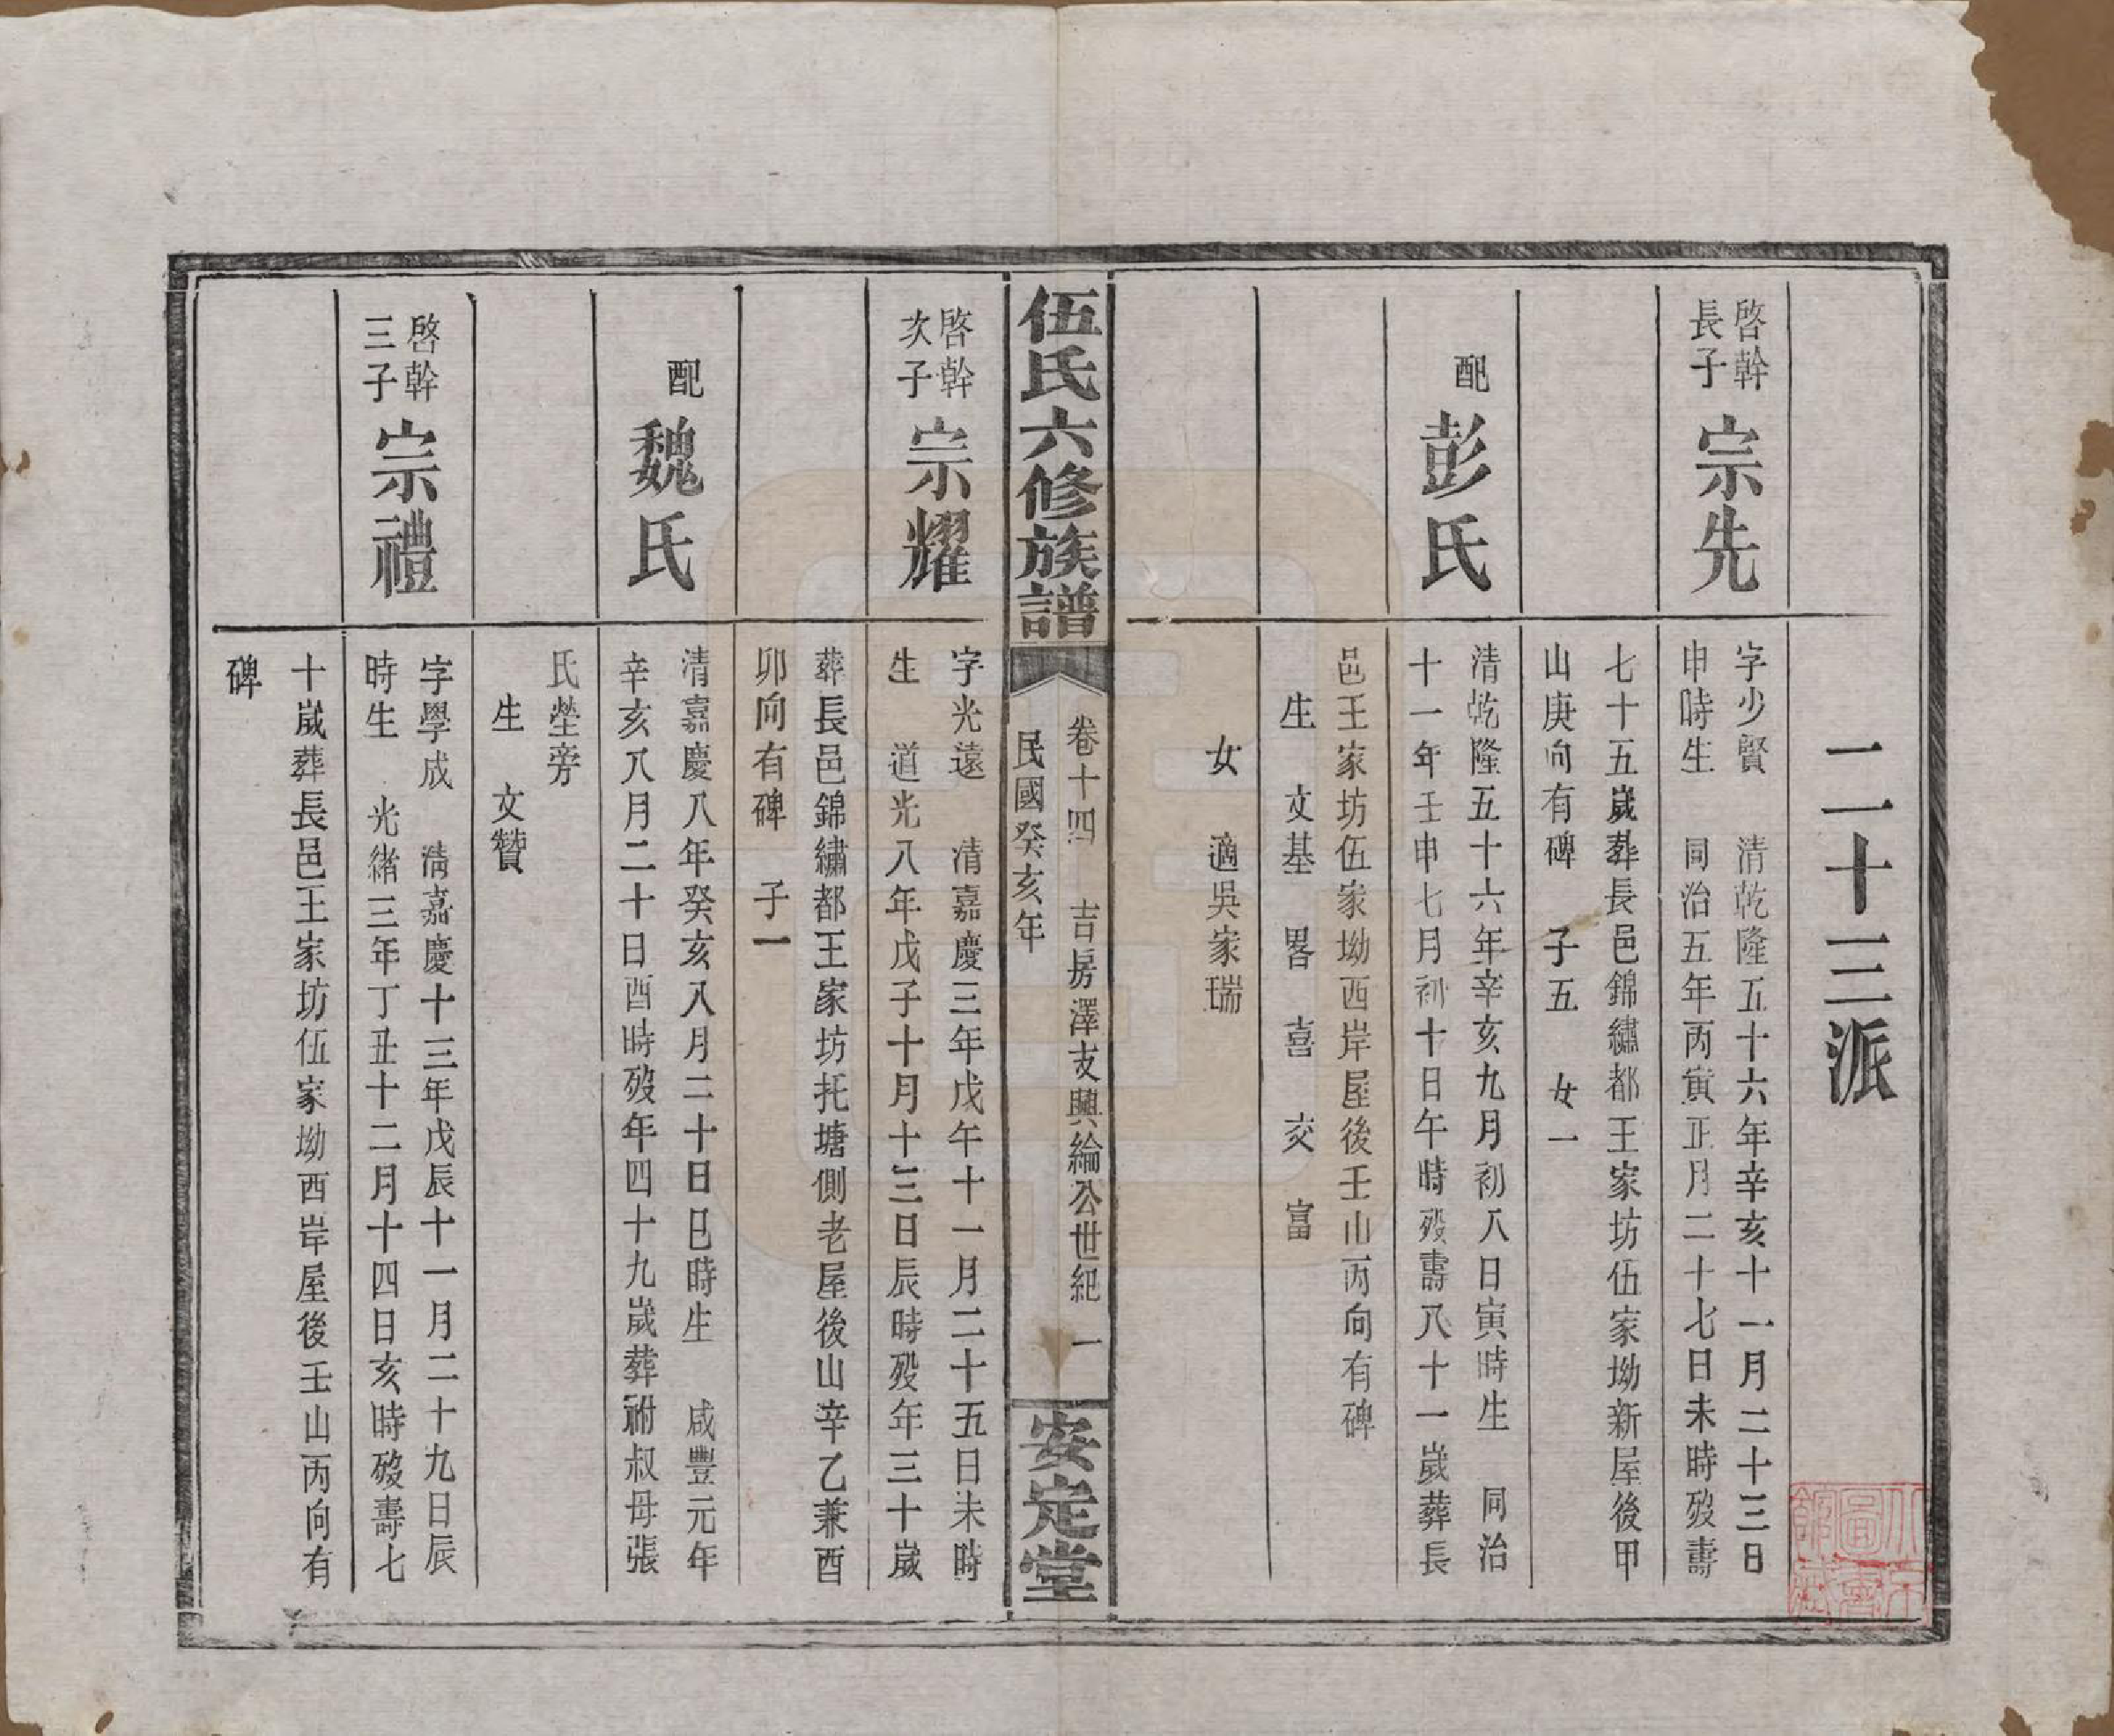 二十三派
啓幹
長子
宗先
字少賢　清乾隆五十六年辛亥十一月二十三日
申時生　同治五年丙寅正月二十七日未時歿壽
七十五歲葬長邑錦繡都王家坊伍家坳新屋後甲
山庚向有碑　子五　女一
配
彭氏
清乾隆五十六年辛亥九月初八日寅時生　同治
十一年壬申七月初十日午時歿壽八十一歲葬長
邑王家坊伍家坳西岸屋後壬山丙向有碑
生　文基　畧　喜　交　富
女　適吳家瑞
伍氏六修族譜
卷十四　吉房澤支興綸公世紀　一
民國癸亥年
安定堂
啓幹
次子
宗耀
字光遠　清嘉慶三年戊午十一月二十五日未時
生　道光八年戊子十月十三日辰時歿年三十歲
葬長邑錦繡都王家坊托塘側老屋後山辛乙兼酉
卯向有碑　子一
配
魏氏
清嘉慶八年癸亥八月二十日巳時生　咸豐元年
辛亥八月二十日酉時歿年四十九歲葬祔叔母張
氏塋旁
生　文贊
啓幹
三子
宗禮
字學成　清嘉慶十三年戊辰十一月二十九日辰
時生　光緒三年丁丑十二月十四日亥時歿壽七
十歲葬長邑王家坊伍家坳西岸屋後壬山丙向有
碑